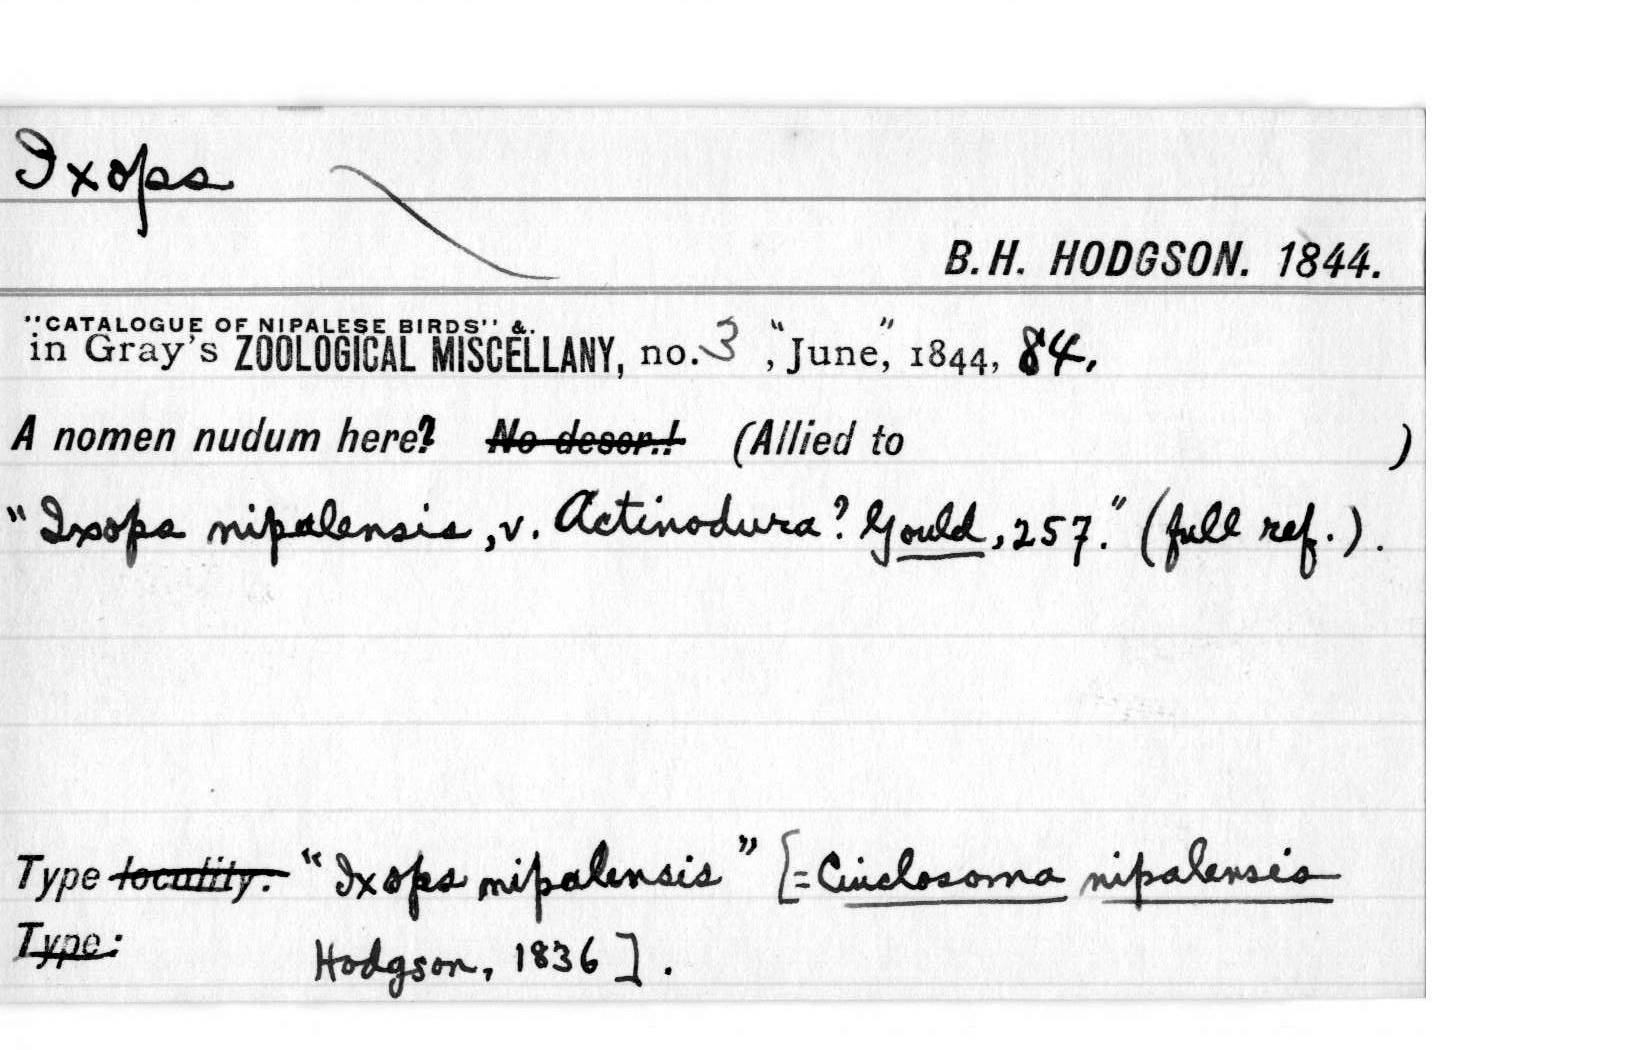 Ixops
B. H. HODGSON. 1844.
"CATALOGUE OF NIPALESE BIRDS" &.
in Gray's ZOOLOGICAL MISCELLANY, no. 3, "June," 1844, 84.
A nomen nudum here? No descr.! (Allied to )
"Ixops nipalensis, v. Actinodura? Gould, 257." (full ref.).
Type locality: "Ixops nipalensis" [= Cinclosoma nipalensis
Type: Hodgson, 1836].